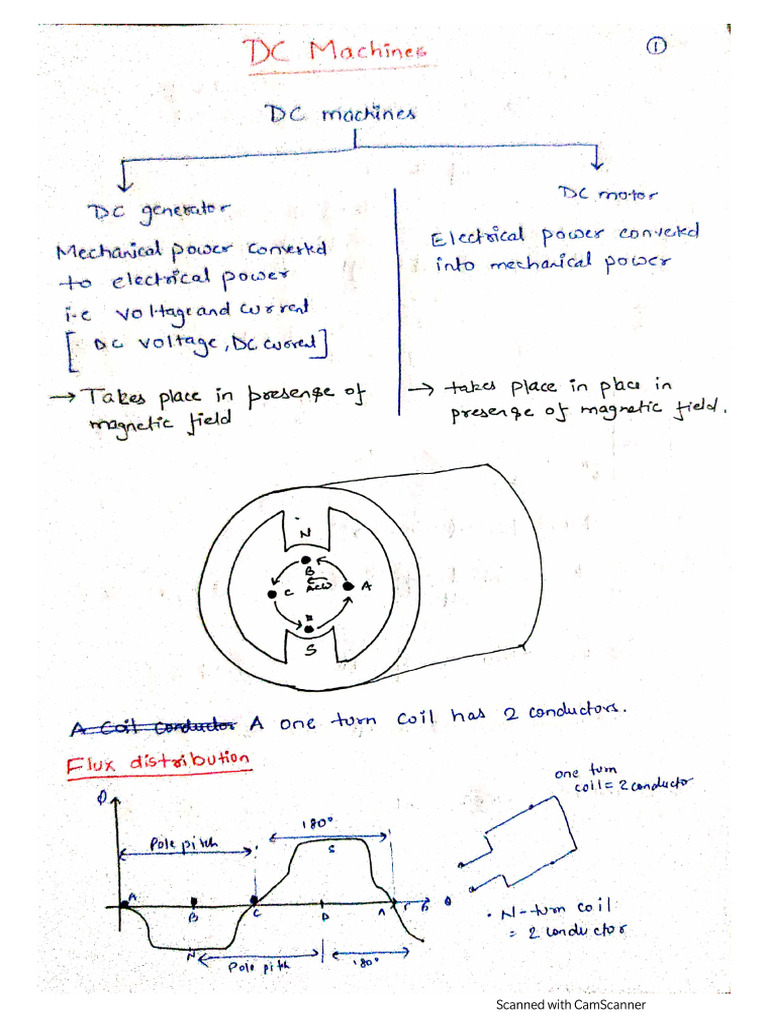 DC Machines
1
DC machines
DC generator
Mechanical power converted
to electrical power
i.e voltage and current
[DC voltage, DC current]
→ Takes place in presense of
magnetic field
DC motor
Electrical power converted
into mechanical power
→ takes place in place in
presense of magnetic field.
N
B
ACW
C
A
S
A Coil conductor A one turn coil has 2 conductors.
Flux distribution
one turn
coil = 2 conductor
Φ
180°
Pole pitch
S
A
B
C
D
A
θ
N
Pole pitch
180°
• N-turn coil
= 2 conductor
Scanned with CamScanner